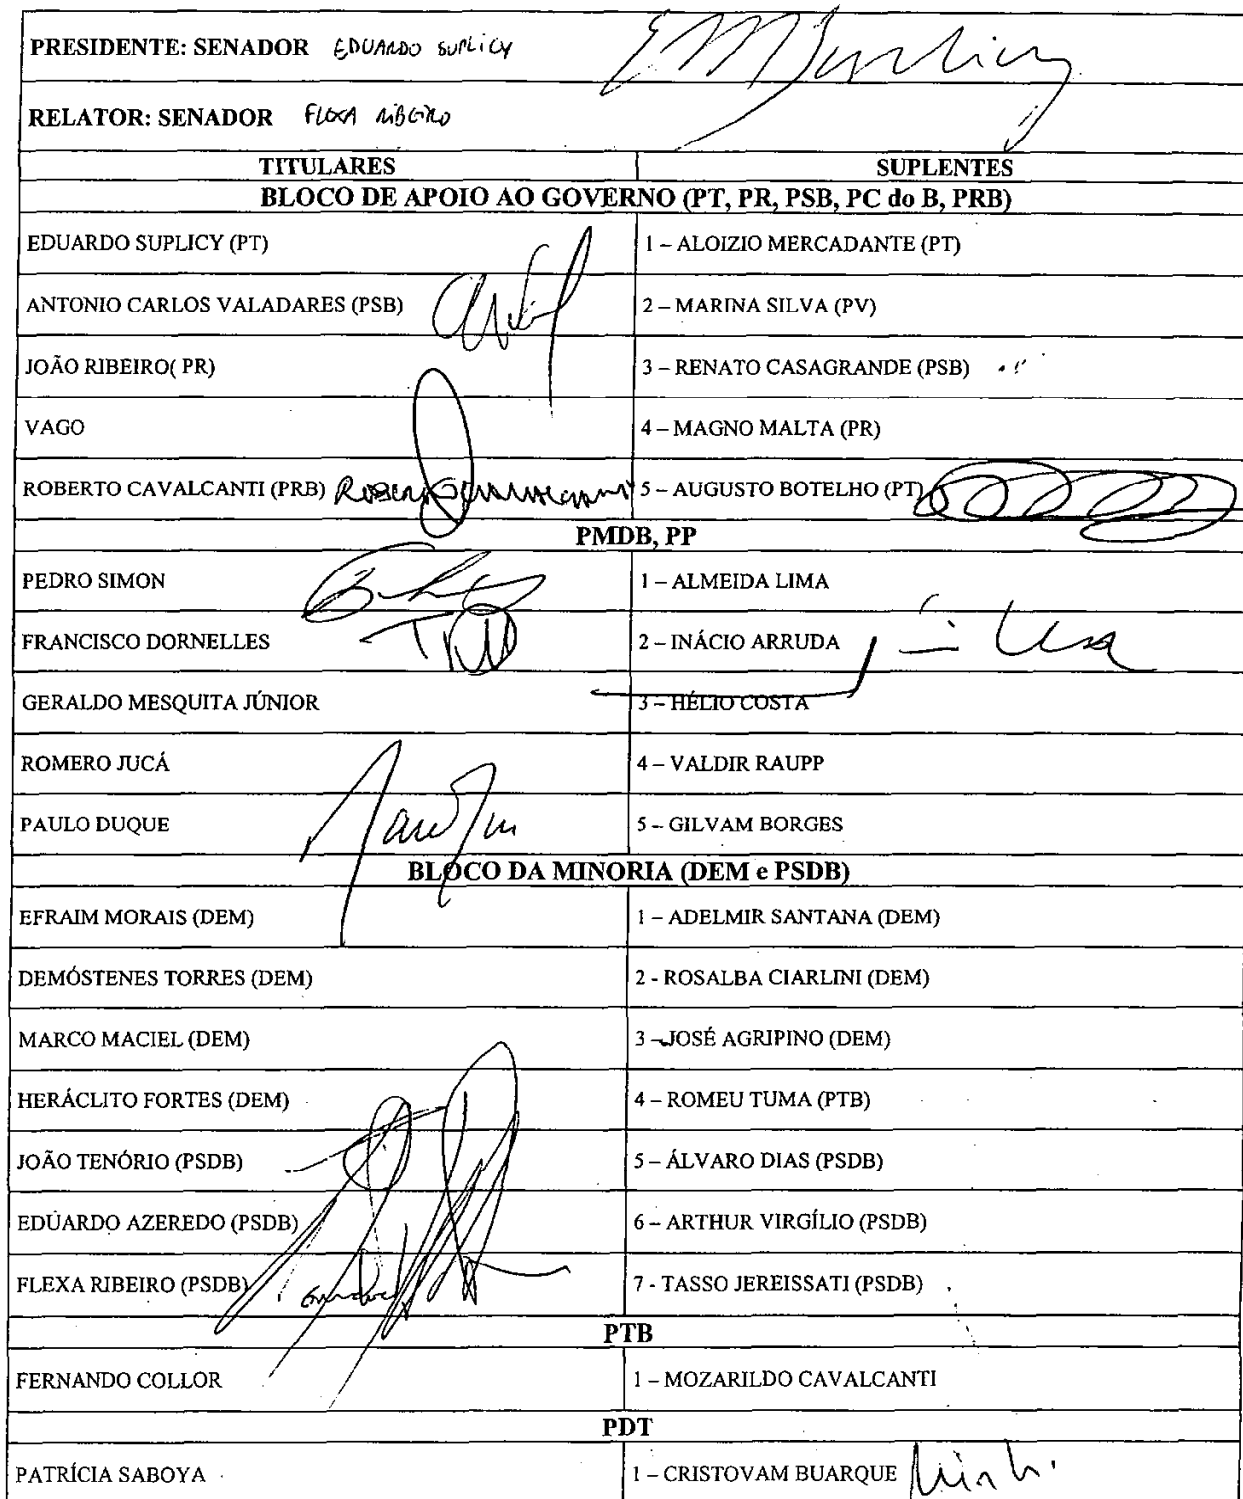 PRESIDENTE: SENADOR EDUARDO SUPLICY
RELATOR: SENADOR FLEXA RIBEIRO
TITULARES SUPLENTES
BLOCO DE APOIO AO GOVERNO (PT, PR, PSB, PC do B, PRB)
EDUARDO SUPLICY (PT) 1 – ALOIZIO MERCADANTE (PT)
ANTONIO CARLOS VALADARES (PSB) 2 – MARINA SILVA (PV)
JOÃO RIBEIRO( PR) 3 – RENATO CASAGRANDE (PSB)
VAGO 4 – MAGNO MALTA (PR)
ROBERTO CAVALCANTI (PRB) 5 – AUGUSTO BOTELHO (PT)
PMDB, PP
PEDRO SIMON 1 – ALMEIDA LIMA
FRANCISCO DORNELLES 2 – INÁCIO ARRUDA
GERALDO MESQUITA JÚNIOR 3 – HÉLIO COSTA
ROMERO JUCÁ 4 – VALDIR RAUPP
PAULO DUQUE 5 – GILVAM BORGES
BLOCO DA MINORIA (DEM e PSDB)
EFRAIM MORAIS (DEM) 1 – ADELMIR SANTANA (DEM)
DEMÓSTENES TORRES (DEM) 2 - ROSALBA CIARLINI (DEM)
MARCO MACIEL (DEM) 3 – JOSÉ AGRIPINO (DEM)
HERÁCLITO FORTES (DEM) 4 – ROMEU TUMA (PTB)
JOÃO TENÓRIO (PSDB) 5 – ÁLVARO DIAS (PSDB)
EDUARDO AZEREDO (PSDB) 6 – ARTHUR VIRGÍLIO (PSDB)
FLEXA RIBEIRO (PSDB) 7 - TASSO JEREISSATI (PSDB)
PTB
FERNANDO COLLOR 1 – MOZARILDO CAVALCANTI
PDT
PATRÍCIA SABOYA 1 – CRISTOVAM BUARQUE